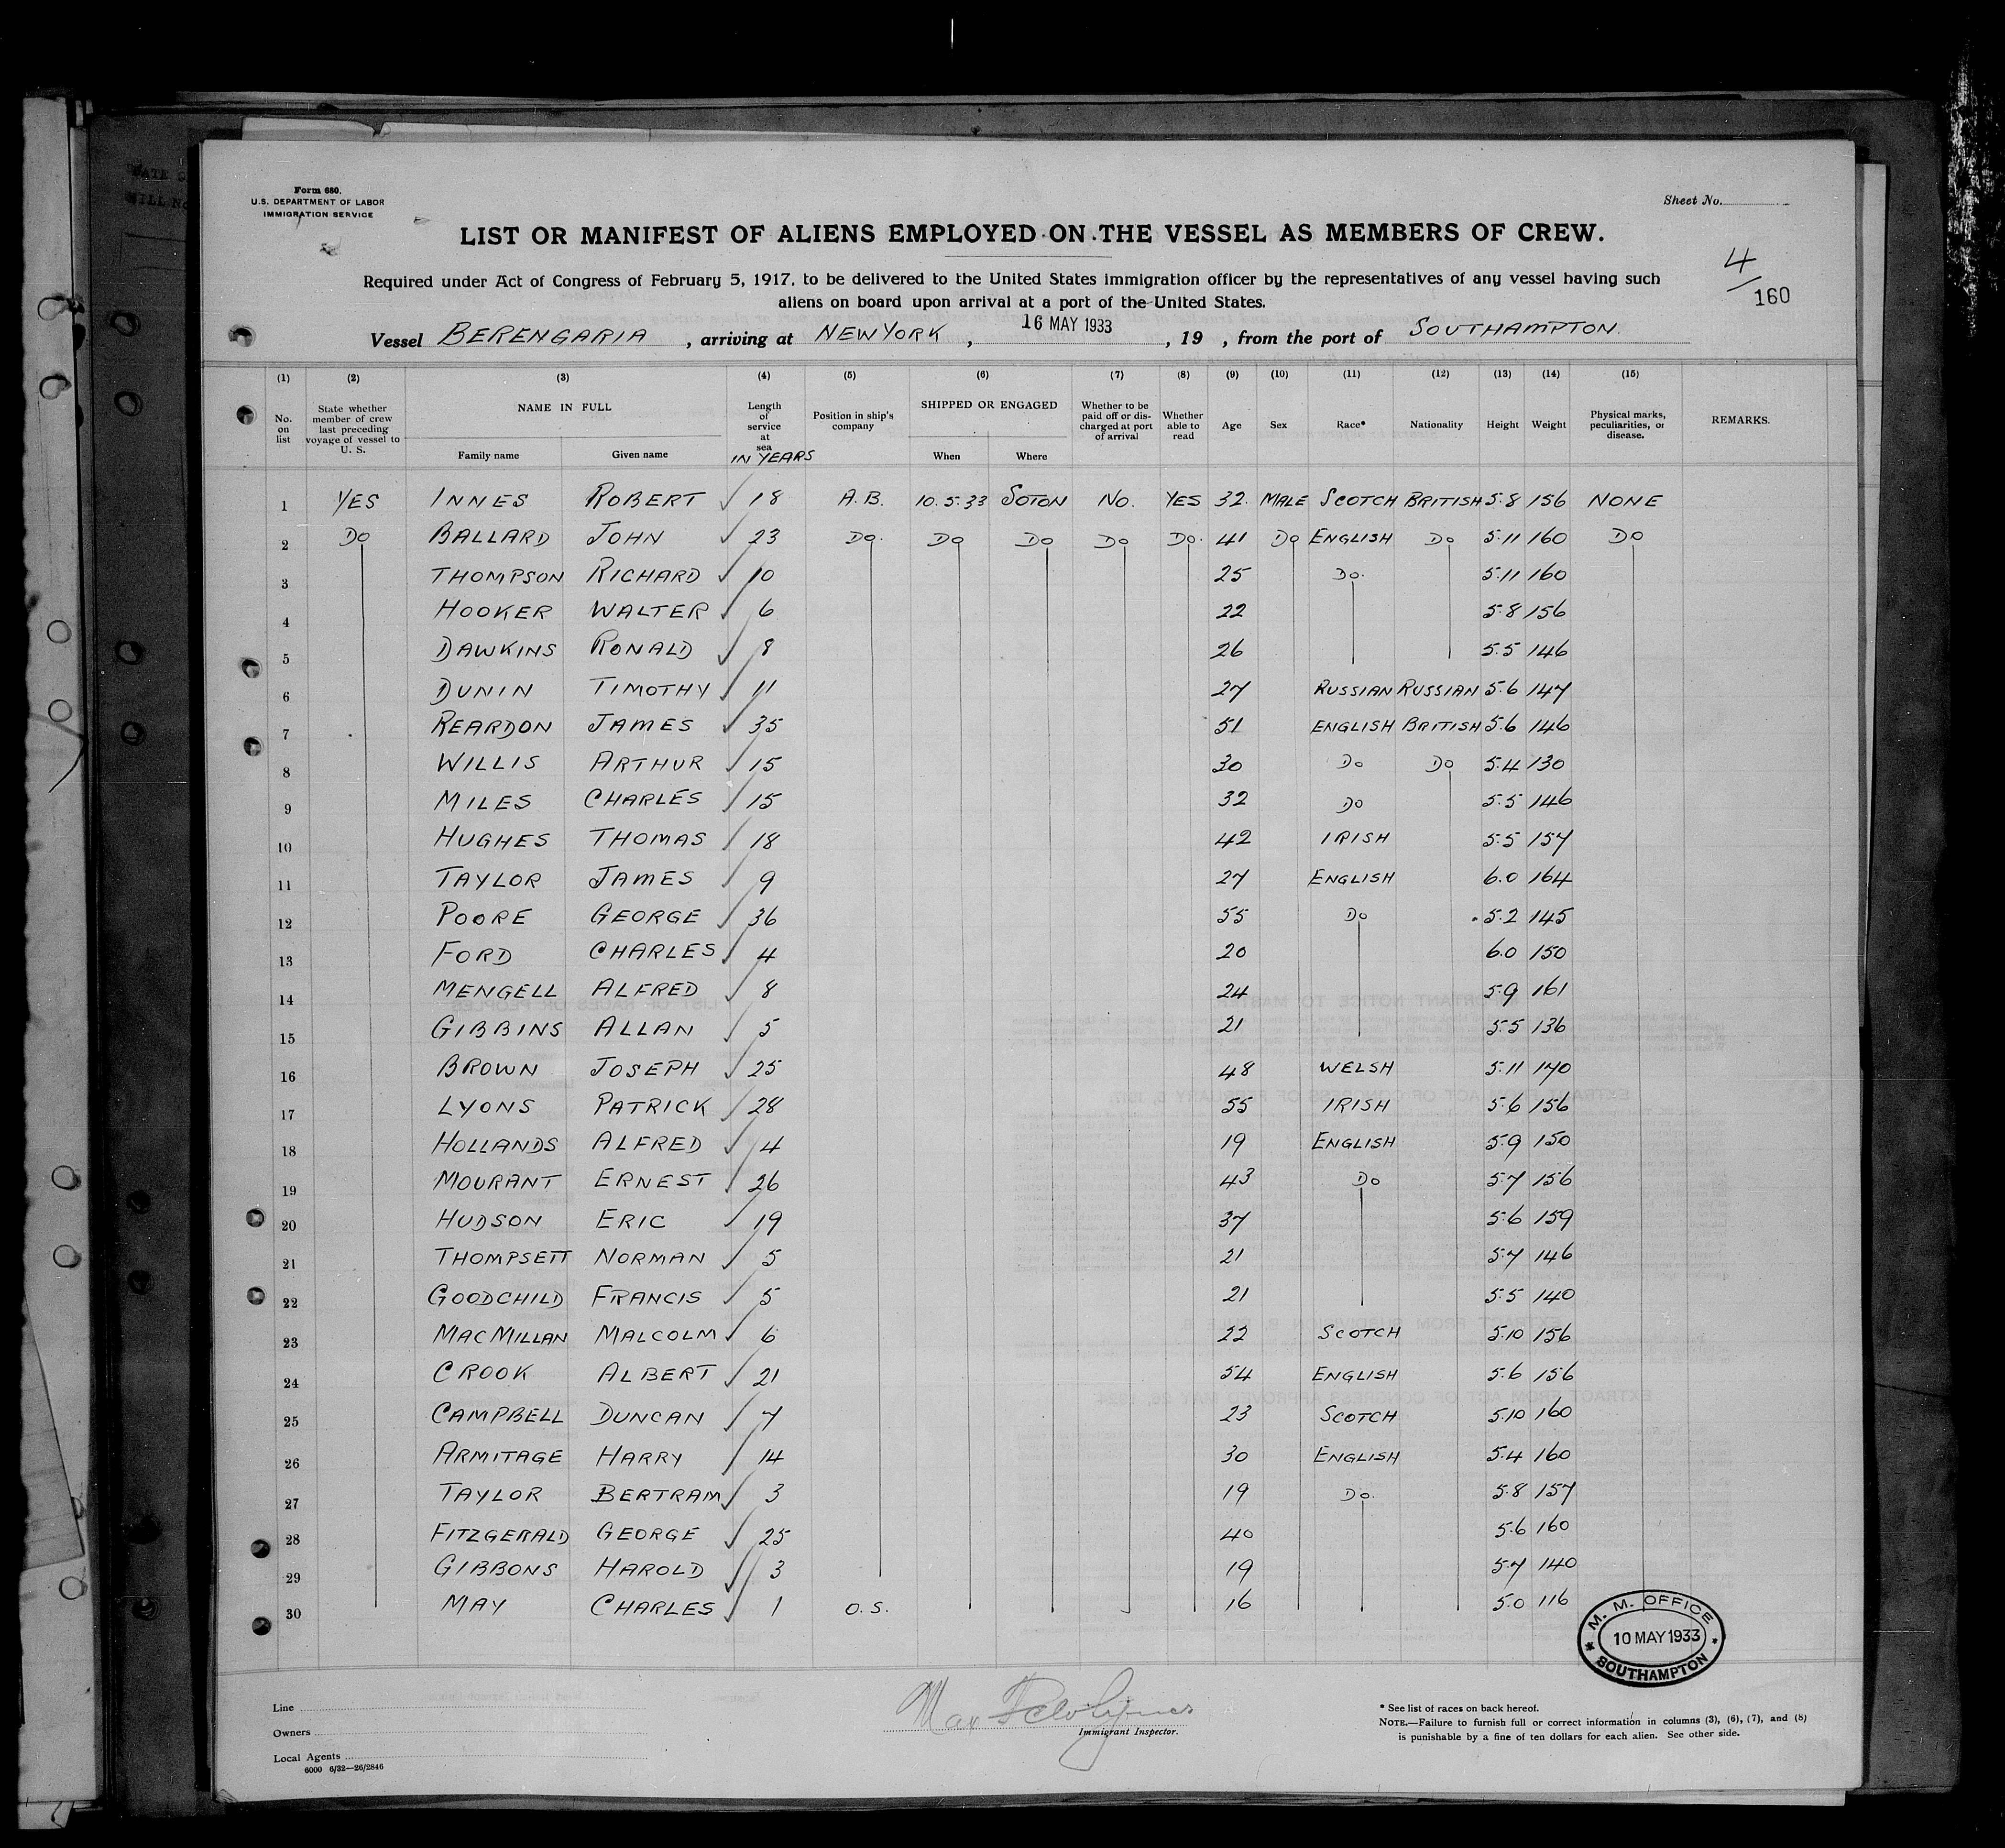 Form 680.
U.S. DEPARTMENT OF LABOR
IMMIGRATION SERVICE
Sheet No.
LIST OR MANIFEST OF ALIENS EMPLOYED ON THE VESSEL AS MEMBERS OF CREW.
4/160
Required under Act of Congress of February 5, 1917, to be delivered to the United States immigration officer by the representatives of any vessel having such
aliens on board upon arrival at a port of the United States.
Vessel BERENGARIA, arriving at NEW YORK, 16 MAY 1933, 19 , from the port of SOUTHAMPTON.
(1) (2) (3) (4) (5) (6) (7) (8) (9) (10) (11) (12) (13) (14) (15)
No. on list State whether member of crew last preceding voyage of vessel to U. S. NAME IN FULL Family name Given name Length of service at sea IN YEARS Position in ship's company SHIPPED OR ENGAGED When Where Whether to be paid off or discharged at port of arrival Whether able to read Age Sex Race* Nationality Height Weight Physical marks, peculiarities, or disease. REMARKS.
1 YES INNES ROBERT ✓ 18 A.B. 10.5.33 SOTON NO. YES 32. MALE SCOTCH BRITISH 5.8 156 NONE
2 DO BALLARD JOHN ✓ 23 DO. DO DO DO DO. 41 DO ENGLISH DO 5.11 160 DO
3 THOMPSON RICHARD ✓ 10 25 DO. 5.11 160
4 HOOKER WALTER ✓ 6 22 5.8 156
5 DAWKINS RONALD ✓ 8 26 5.5 146
6 DUNIN TIMOTHY ✓ 11 27 RUSSIAN RUSSIAN 5.6 147
7 REARDON JAMES ✓ 35 51 ENGLISH BRITISH 5.6 146
8 WILLIS ARTHUR ✓ 15 30 DO DO 5.4 130
9 MILES CHARLES ✓ 15 32 DO 5.5 146
10 HUGHES THOMAS ✓ 18 42 IRISH 5.5 157
11 TAYLOR JAMES ✓ 9 27 ENGLISH 6.0 164
12 POORE GEORGE ✓ 36 55 DO 5.2 145
13 FORD CHARLES ✓ 4 20 6.0 150
14 MENGELL ALFRED ✓ 8 24 5.9 161
15 GIBBINS ALLAN ✓ 5 21 5.5 136
16 BROWN JOSEPH ✓ 25 48 WELSH 5.11 170
17 LYONS PATRICK ✓ 28 55 IRISH 5.6 156
18 HOLLANDS ALFRED ✓ 4 19 ENGLISH 5.9 150
19 MOURANT ERNEST ✓ 26 43 DO 5.7 156
20 HUDSON ERIC ✓ 19 37 5.6 159
21 THOMPSETT NORMAN ✓ 5 21 5.7 146
22 GOODCHILD FRANCIS ✓ 5 21 5.5 140
23 MACMILLAN MALCOLM ✓ 6 22 SCOTCH 5.10 156
24 CROOK ALBERT ✓ 21 54 ENGLISH 5.6 156
25 CAMPBELL DUNCAN ✓ 7 23 SCOTCH 5.10 160
26 ARMITAGE HARRY ✓ 14 30 ENGLISH 5.4 160
27 TAYLOR BERTRAM ✓ 3 19 DO. 5.8 157
28 FITZGERALD GEORGE ✓ 25 40 5.6 160
29 GIBBONS HAROLD ✓ 3 19 5.7 140
30 MAY CHARLES ✓ 1 O.S. 16 5.0 116
M. M. OFFICE
10 MAY 1933
SOUTHAMPTON
Line
Owners
Local Agents
6000 6/32—26/2846
Max
Immigrant Inspector.
* See list of races on back hereof.
NOTE.—Failure to furnish full or correct information in columns (3), (6), (7), and (8)
is punishable by a fine of ten dollars for each alien. See other side.